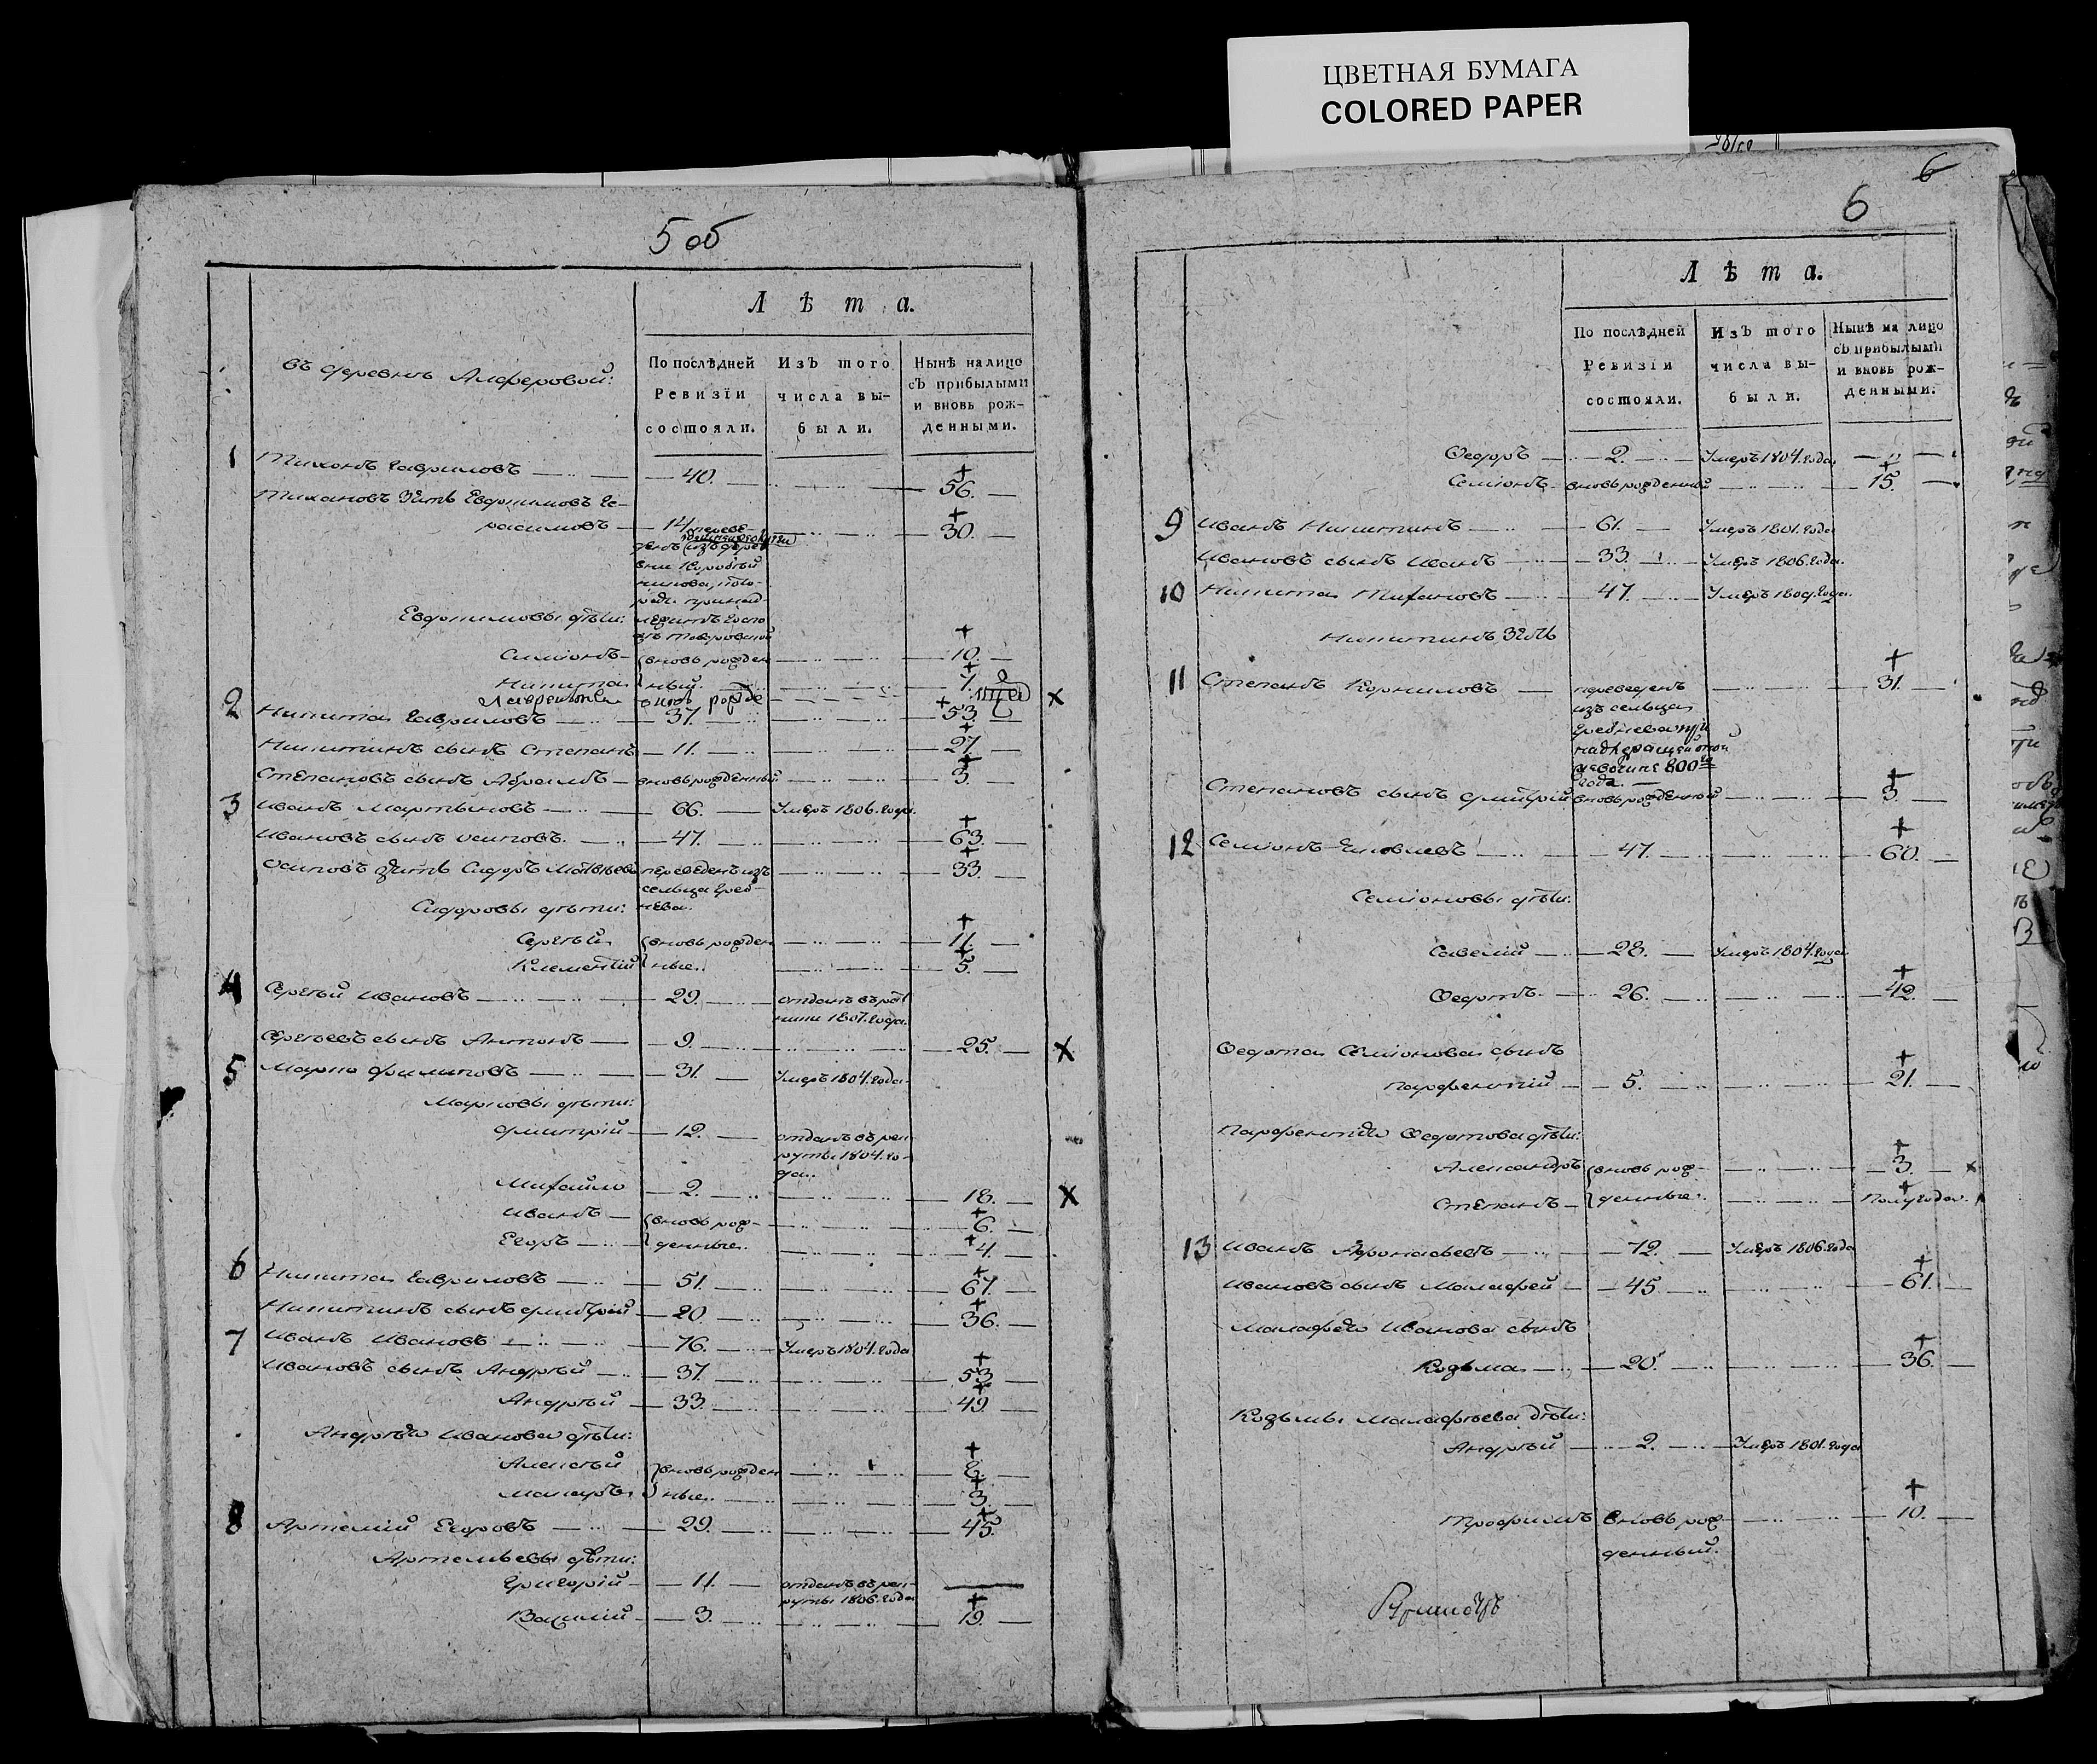 ЦВЕТНАЯ БУМАГА
COLORED PAPER
5 об
Лѣта.
въ деревнѣ Алферовой:
По послѣдней Ревизіи состояли.
Изъ того числа выбыли.
Нынѣ на лицо съ прибылыми и вновь рожденными.
1 Тихонъ Гавриловъ 40. 56.
Тихановъ зять Евдокимовъ Ге-
расимовъ 14 30.
Евдокимовы дѣти:
Симіонъ вновь рожден 10.
Никита ный. 1.
Лаврентей вновь рожде
2 Никита Гавриловъ 37. 53.
Никитинъ сынъ Степанъ 11. 27.
Степановъ сынъ Абрамъ вновь рожденный 3.
3 Иванъ Мартыновъ 66. Умеръ 1806. года.
Ивановъ сынъ Осиповъ 47. 63.
Осиповъ зять Сидоръ Матвѣевъ переведенъ изъ 33.
сельца Греб-
нева.
Сидоровы дѣти:
Сергѣй вновь рожден 11.
Климентій ные. 5.
4 Сергѣй Ивановъ 29. отданъ въ рат
ники 1807. года.
Сергѣевъ сынъ Антонъ 9. 25.
5 Марко Филиповъ 31. Умеръ 1804. года.
Марковы дѣти:
Дмитрій 12. отданъ въ рек
руты 1804. го-
да.
Михайло 2. 18.
Иванъ вновь рож- 6.
Егоръ денные. 4.
6 Никита Гавриловъ 51. 67.
Никитинъ сынъ Дмитрій 20. 36.
7 Иванъ Ивановъ 76. Умеръ 1804. года
Ивановъ сынъ Андрѣй 37. 53
Андрѣй 33. 49.
Андрѣя Иванова дѣти:
Алексѣй вновь рожден
Макаръ ные. 3.
8 Артемій Егоровъ 29. 45.
Артемьевы дѣти:
Григорій 11. отданъ въ рек-
руты 1806. года
Василій 3. 19.
6
6
Лѣта.
По послѣдней Ревизіи состояли.
Изъ того числа выбыли.
Нынѣ на лицо съ прибылыми и вновь рожденными.
Ѳедоръ 2. Умеръ 1804. года
Семіонъ вновь рожденный 15.
9 Иванъ Никитинъ 61. Умеръ 1801. года
Ивановъ сынъ Иванъ 33. Умеръ 1806. года.
10 Никита Тихановъ 47. Умеръ 1809. года.
Никитинъ зять
11 Степанъ Корниловъ переведенъ 31.
изъ сельца
Гребнева
года.
Степановъ сынъ Дмитрій вновь рожденной 3.
12 Семіонъ Яковлевъ 47. 60.
Семіоновы дѣти:
Савелій 28. Умеръ 1804. года
Ѳедотъ 26. 42.
Ѳедота Семіонова сынъ
Парфентій 5. 21.
Парфентія Ѳедотова дѣти:
Александръ вновь рож- 3.
Степанъ денные. полугода.
13 Иванъ Афонасьевъ 72. Умеръ 1806. года
Ивановъ сынъ Малафей 45 61.
Малафея Иванова сынъ
Козьма 20. 36.
Козьмы Малафѣева дѣти:
Андрѣй 2. Умеръ 1801. года
Трофимъ вновь рож- 10.
денный.